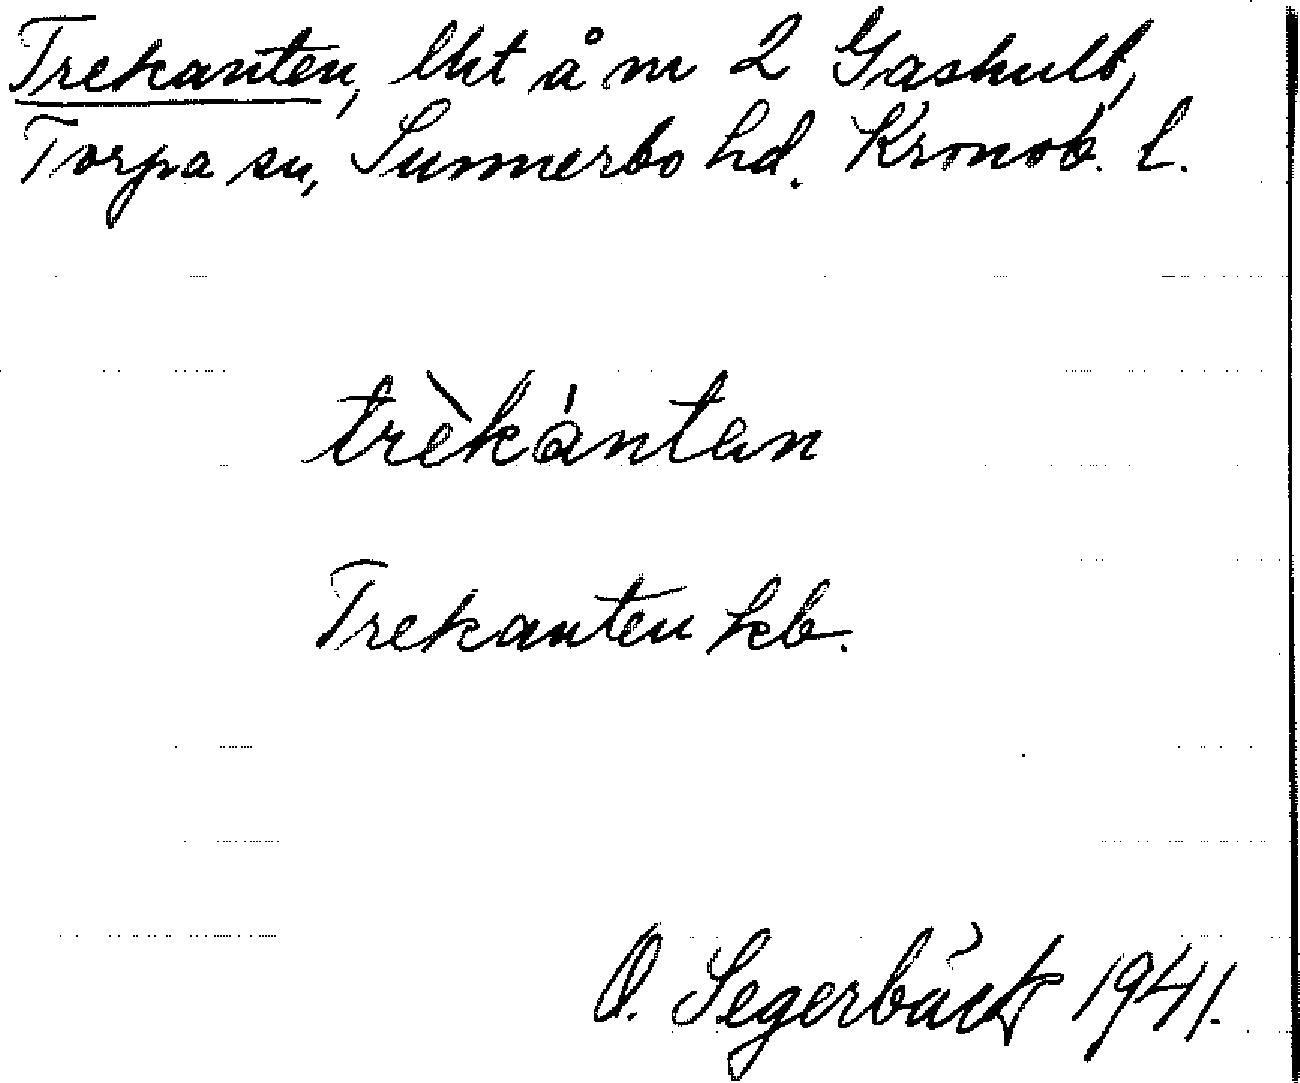 Trekanten, lht å m 2 Gashult,
Torpa sn, Sunnerbo hd. Kronob. l.
trèkántan
Trekanten kb.
O. Segerbäck 1941.